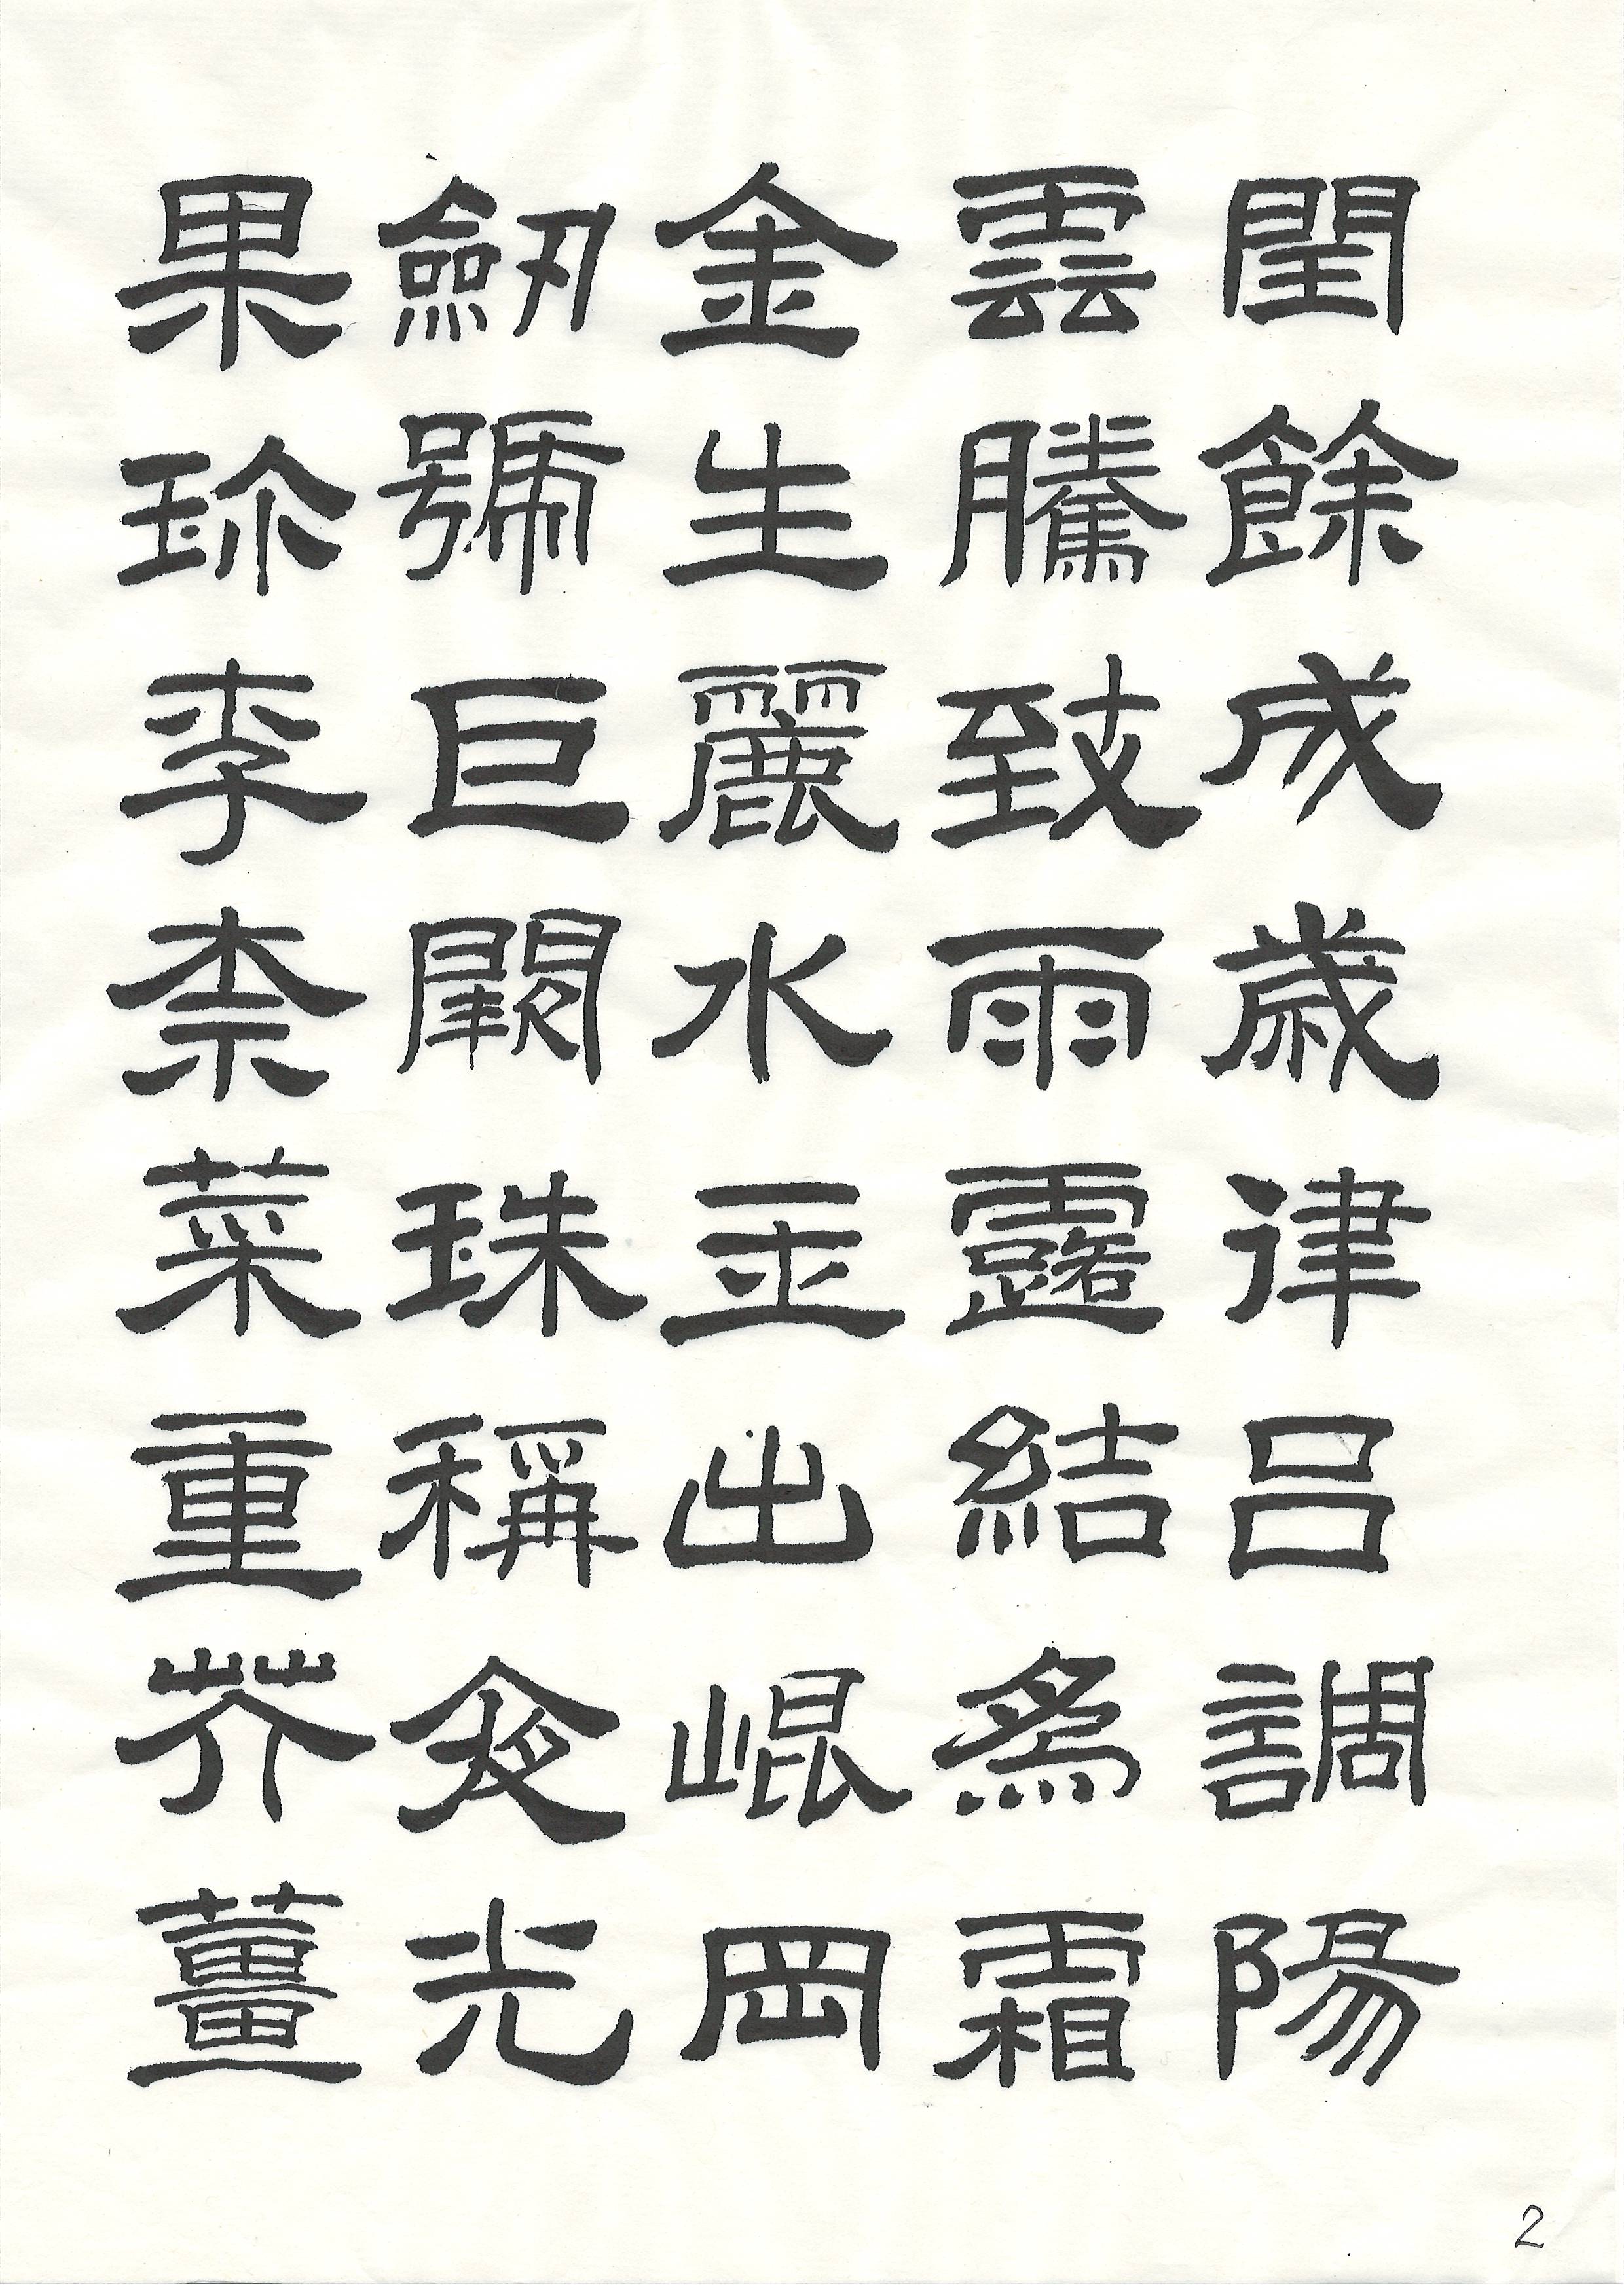 閏餘成歲律呂調陽
雲騰致雨露結爲霜
金生麗水玉出崐岡
劒號巨闕珠稱夜光
果珎李柰菜重芥薑
2